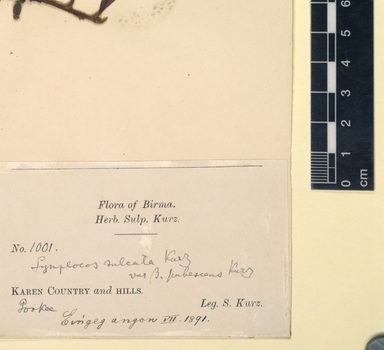 Flora of Birma.
Herb. Sulp. Kurz.
No. 1001.
Symplocos sulcata Kurz
var β. pubescens Kurz
KAREN COUNTRY and HILLS.
Leg. S. Kurz.
VII. 1891.
6
5
4
3
2
1
0
cm